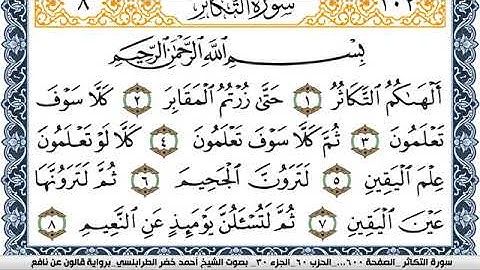 ٨ سورة التكاثر ١٠٢
بِسْمِ اللَّهِ الرَّحْمَٰنِ الرَّحِيمِ
أَلْهَاكُمُ التَّكَاثُرُ ١ حَتَّىٰ زُرْتُمُ الْمَقَابِرَ ٢ كَلَّا سَوْفَ
تَعْلَمُونَ ٣ ثُمَّ كَلَّا سَوْفَ تَعْلَمُونَ ٤ كَلَّا لَوْ تَعْلَمُونَ
عِلْمَ الْيَقِينِ ٥ لَتَرَوُنَّ الْجَحِيمَ ٦ ثُمَّ لَتَرَوُنَّهَا
عَيْنَ الْيَقِينِ ٧ ثُمَّ لَتُسْـَٔلُنَّ يَوْمَئِذٍ عَنِ النَّعِيمِ ٨
سورة التكاثر_ الصفحة ٦٠٠... الحزب ٦٠_الجزء ٣٠_ بصوت الشيخ أحمد خضر الطرابلسي_ برواية قالون عن نافع